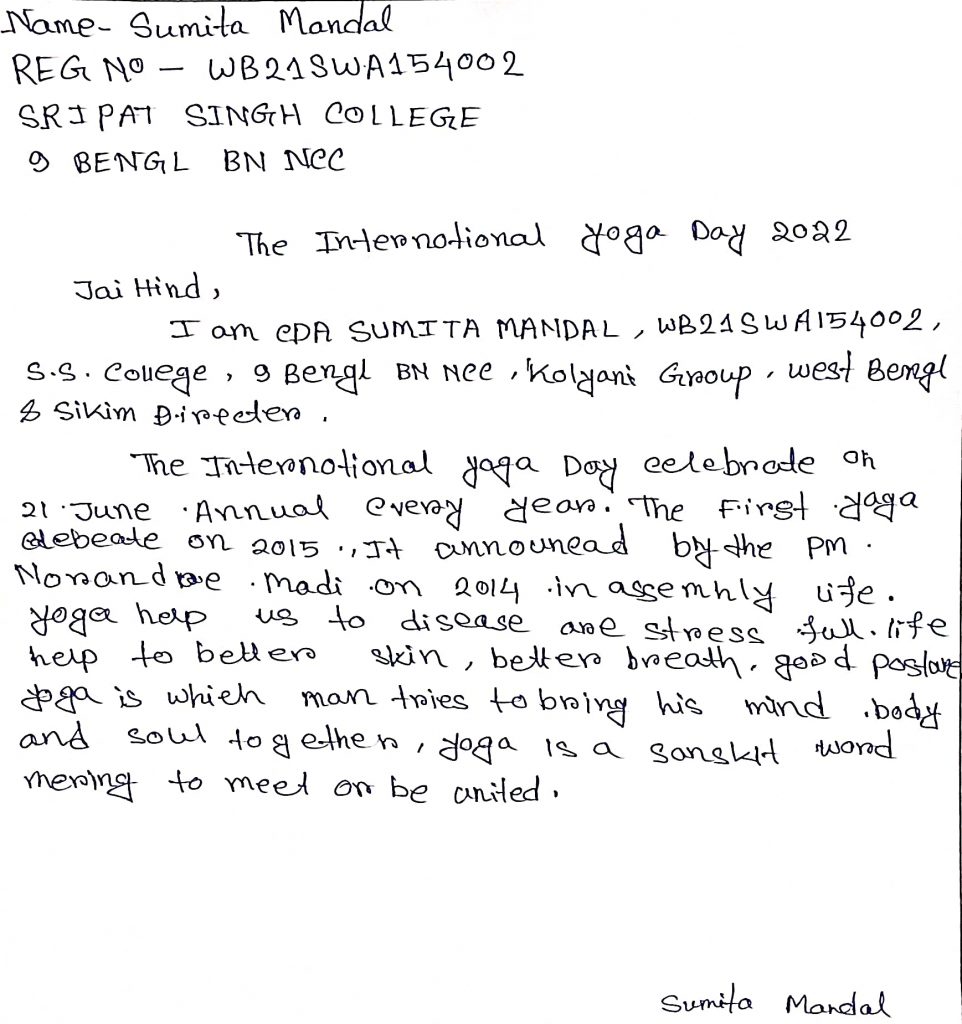 Name- Sumita Mandal
REG NO - WB21SWA154002
SRIPAT SINGH COLLEGE
9 BENGL BN NCC
The International Yoga Day 2022
Jai Hind,
I am CDA SUMITA MANDAL, WB21SWA154002,
S.S. College, 9 Bengl BN NCC, Kolyani Group, West Bengl
& Sikim Directer.
The International yaga Day celebrate on
21 June Annual every year. The First yaga
celebeate on 2015., It announead by the PM.
Norandroe Madi on 2014 in assemhly life.
Yoga help us to disease are stress full life
help to better skin, better breath, good postare
yoga is which man tries to bring his mind body
and soul together, yoga is a sanskit word
mering to meet or be united.
Sumita Mandal